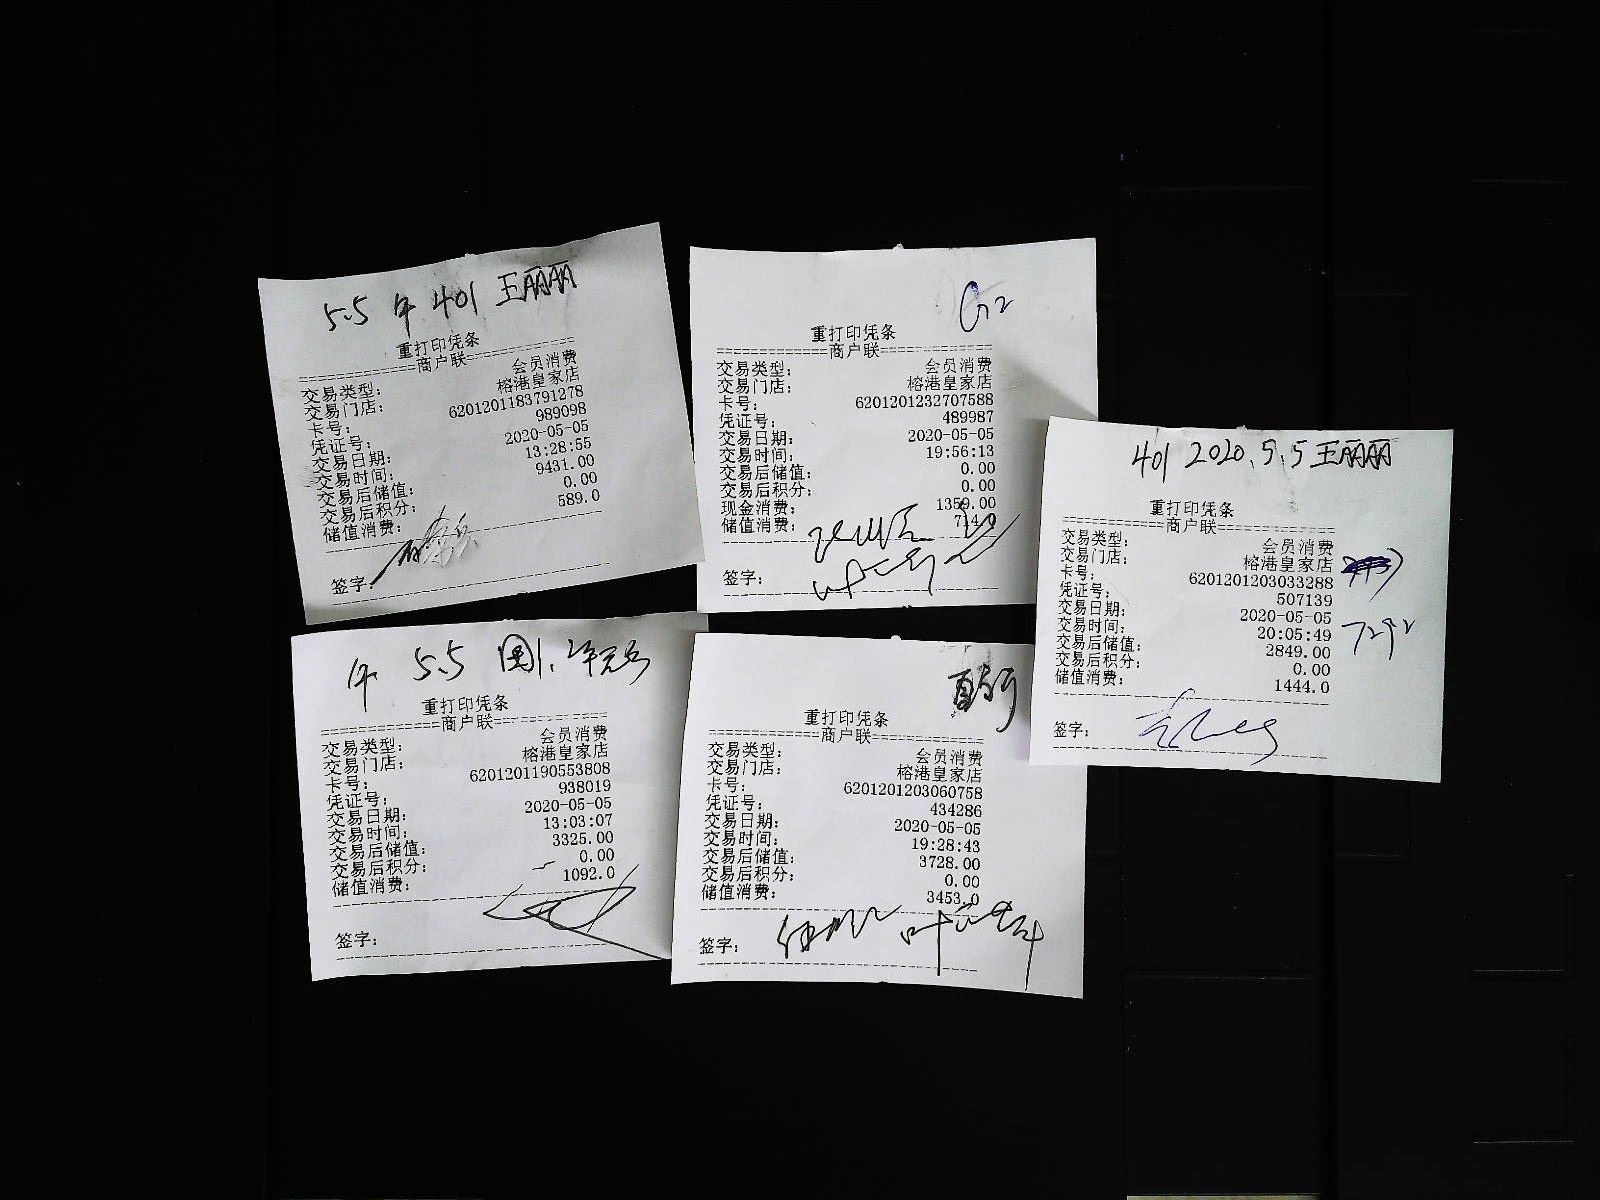 5.5 午 401 王丽丽
重打印凭条
==========商户联==========
交易类型: 会员消费
交易门店: 榕港皇家店
卡号: 6201201183791278
凭证号: 989098
交易日期: 2020-05-05
交易时间: 13:28:55
交易后储值: 9431.00
交易后积分: 0.00
储值消费: 589.0
签字:
G2
重打印凭条
==========商户联==========
交易类型: 会员消费
交易门店: 榕港皇家店
卡号: 6201201232707588
凭证号: 489987
交易日期: 2020-05-05
交易时间: 19:56:13
交易后储值: 0.00
交易后积分: 0.00
现金消费: 1359.00
储值消费: 714.0
签字:
401 2020.5.5 王丽丽
重打印凭条
==========商户联==========
交易类型: 会员消费
交易门店: 榕港皇家店
卡号: 6201201203033288
凭证号: 507139
交易日期: 2020-05-05
交易时间: 20:05:49
交易后储值: 2849.00
交易后积分: 0.00
储值消费: 1444.0
7292
签字:
午 5.5
重打印凭条
==========商户联==========
交易类型: 会员消费
交易门店: 榕港皇家店
卡号: 6201201190553808
凭证号: 938019
交易日期: 2020-05-05
交易时间: 13:03:07
交易后储值: 3325.00
交易后积分: 0.00
储值消费: 1092.0
签字:
重打印凭条
==========商户联==========
交易类型: 会员消费
交易门店: 榕港皇家店
卡号: 6201201203060758
凭证号: 434286
交易日期: 2020-05-05
交易时间: 19:28:43
交易后储值: 3728.00
交易后积分: 0.00
储值消费: 3453.0
签字: